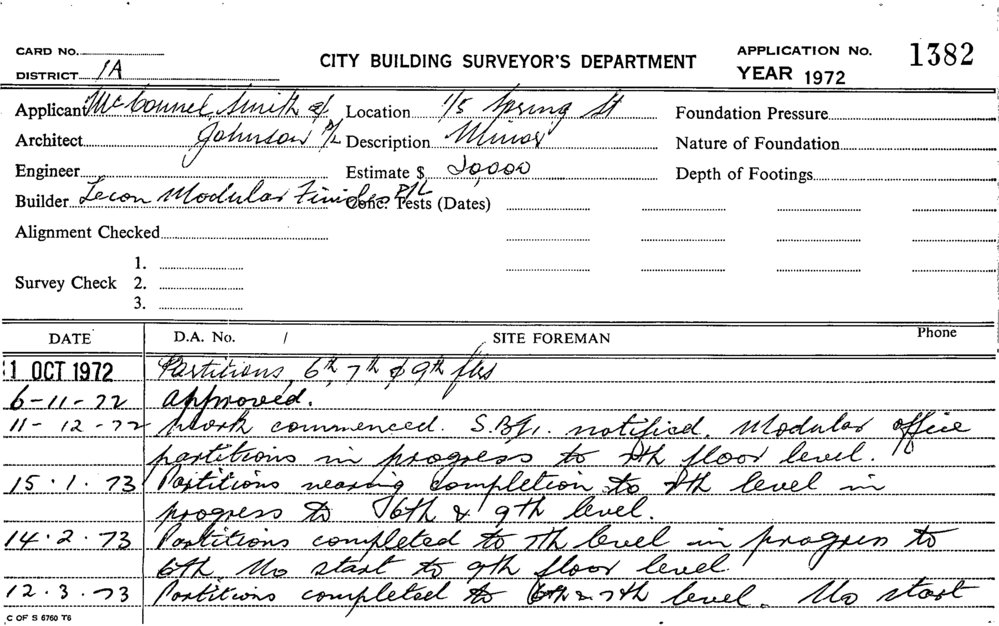 CARD No.
DISTRICT 1A
CITY BUILDING SURVEYOR'S DEPARTMENT
APPLICATION No. 1382
YEAR 1972
Applicant McConnel Smith &
Location 1/5 Spring St
Foundation Pressure
Architect Johnson P/L
Description Minor
Nature of Foundation
Engineer
Estimate $ 20,000
Depth of Footings
Builder Tecon Modular Finishes P/L
Conc. Tests (Dates)
Alignment Checked
Survey Check 1.
2.
3.
DATE D.A. No. / SITE FOREMAN Phone
1 OCT 1972 Partitions, 6th, 7th & 9th flrs
6-11-72 approved.
11-12-72 Work commenced. S.B.I. notified. Modular office
partitions in progress to 7th floor level.
15.1.73 Partitions nearing completion to 7th level in
progress to 6th & 9th level.
14.2.73 Partitions completed to 7th level in progress to
6th No start to 9th floor level
12.3.73 Partitions completed to 6th & 7th level. No start
C OF S 6760 T6